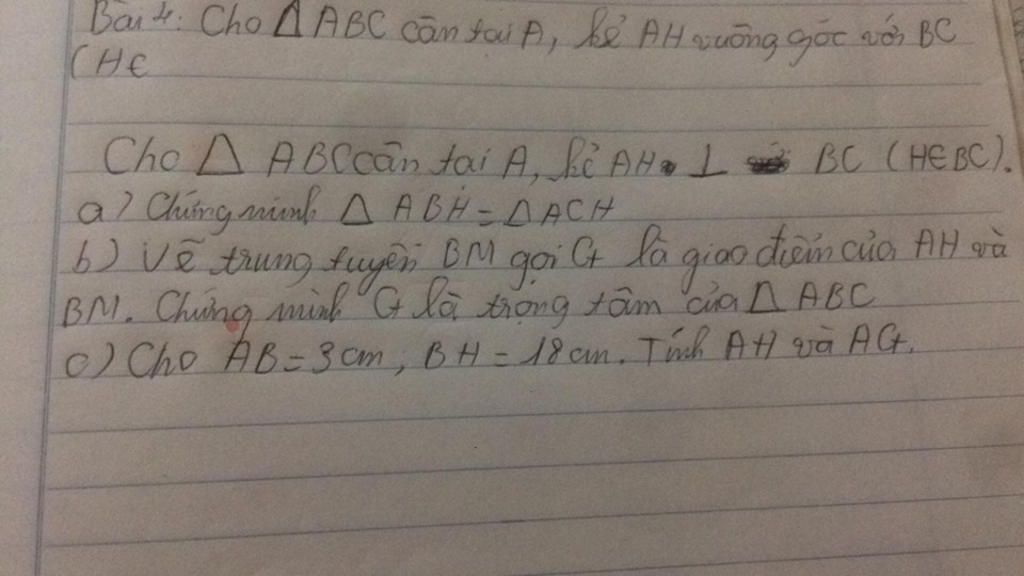 Bài 4: Cho Δ ABC cân tại A, kẻ AH vuông góc với BC
(H∈
Cho Δ ABC cân tại A, kẻ AH ⊥ BC (H∈BC).
a) Chứng minh Δ ABH = Δ ACH
b) Vẽ trung tuyến BM gọi G là giao điểm của AH và
BM. Chứng minh G là trọng tâm của Δ ABC
c) Cho AB = 3cm, BH = 18cm. Tính AH và AG.